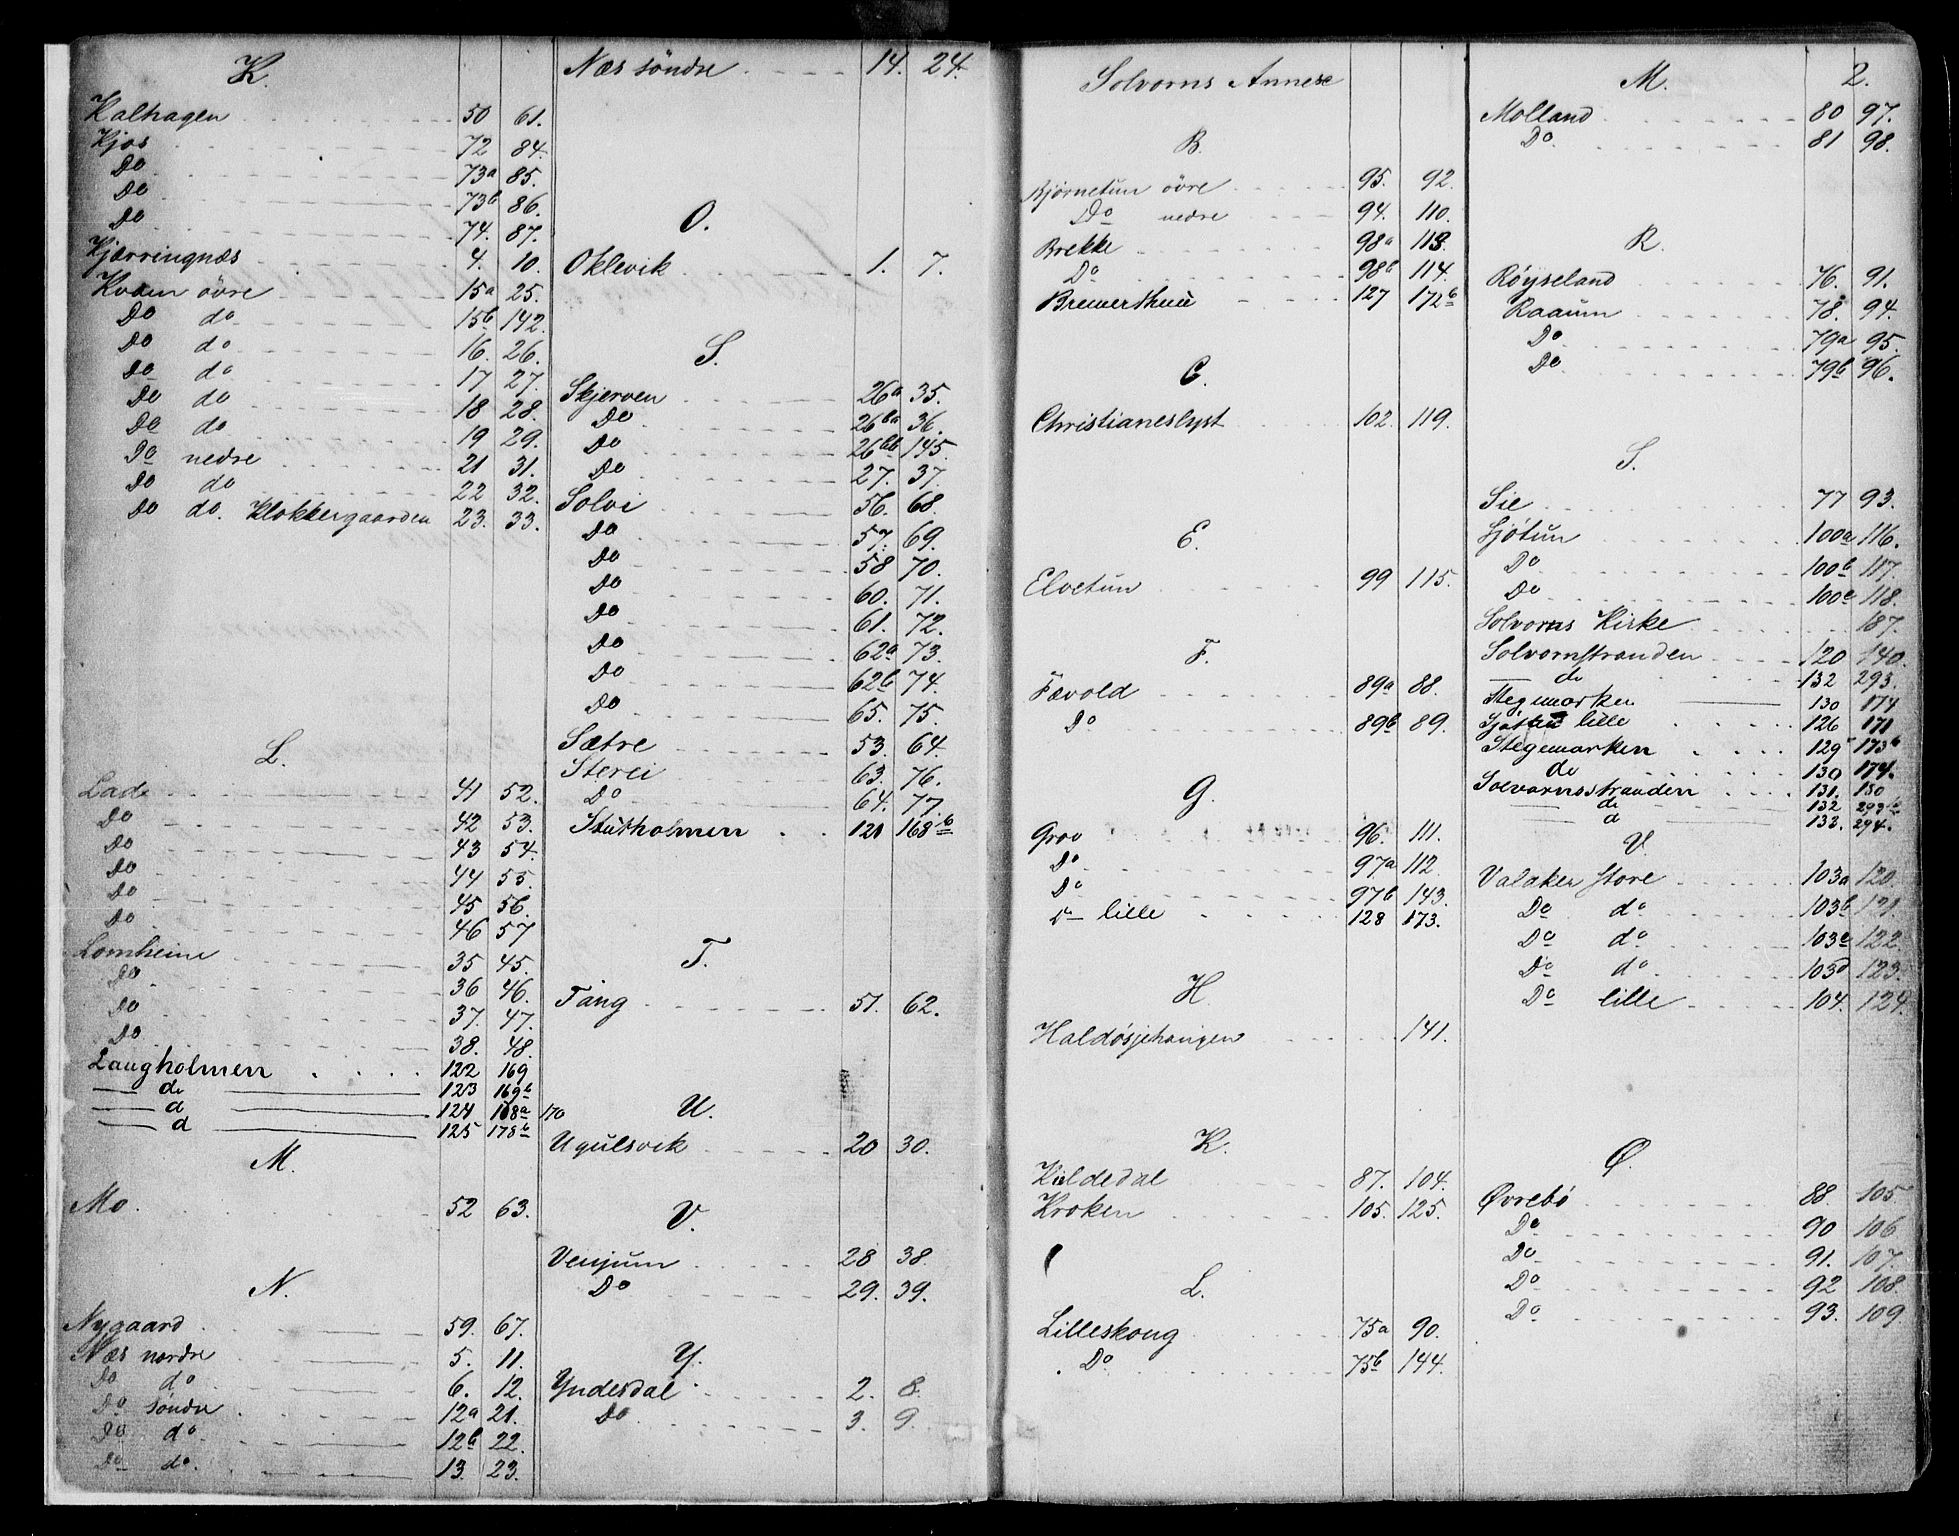 K.
Kalhagen 50 61.
Kjos 72 84.
Do 73a 85.
Do 73b 86.
Do 74. 87.
Kjærringnæs 4. 10.
Kvam övre 15a 25.
Do do 15b 142.
Do do 16. 26.
Do do 17 27.
Do do 18 28.
Do do 19 29.
Do nedre 21 31.
Do do 22 32.
Do do. Klokkergaarden 23. 33.
L.
Lad 41 52.
Do 42 53.
Do 43 54.
Do 44 55.
Do 45 56.
Do 46 57
Lomheim 35 45.
Do 36 46.
Do 37. 47.
Do 38. 48.
Langholmen 122 169
do 123 169b
d 124 168a 170
d 125 178b
M.
Mo 52 63.
N.
Nygaard 59. 67.
Næs nordre 5. 11.
Do do 6. 12.
Do söndre 12a 21.
Do do 12b 22.
Do do. 13. 23.
Næs söndre 14. 24.
O.
Oklevik 1. 7.
S.
Skjerven 26a 35.
Do 26ba 36.
Do 26bb 145.
Do 27. 37.
Solvi 56. 68.
Do 57. 69.
Do 58 70.
Do 60. 71.
Do 61. 72.
Do 62a 73.
Do 62b 74.
Do 65. 75.
Sætre 53. 64.
Sterei 63. 76.
Do 64. 77.
Stutholmen 121 168b
T.
Tang 51. 62.
U.
Ugulsvik 20 30.
V.
Venjum 28 38.
Do 29. 39.
Y.
Yndesdal 2. 8.
Do 3. 9.
Solvorns Annexe
B.
Bjørnetun övre 95. 92.
Do nedre 94. 110.
Brekke 98a 113.
Do 98b 114.
127 172b
C.
Christianeslyst 102. 119.
E.
Elvetun 99 115.
F.
Fævold 89a 88.
Do 89b 89.
G.
Grov 96. 111.
Do 97a 112.
Do 97b 143.
d lille 128 173.
H.
Haldøsjehaugen 141.
K.
Kildedal 87. 104.
Kroken 105. 125.
L.
Lilleskong 75a 90.
Do 75b 144.
M. 2.
Molland 80 97.
Do 81 98.
R.
Røyseland 76. 91.
Raaum 78. 94.
Do 79a 95.
Do 79b 96.
S.
Sie 77 93.
Sjøtun 100a 116.
Do 100b 117.
Do 100c 118.
Solvorns Kirke 187.
Solvornstranden 120 140.
do 132 293.
Stegemarken 130 174
Sjøtun lille 126 171
Stegemarken 129 173b
do 130 174.
Solvornsstranden 131. 180
d 132 293b
d 133. 294.
V.
Valaker store 103a 120.
Do do 103b 121.
Do do 103c 122.
Do do 103d 123.
Do lille 104. 124.
Ø.
Øvrebö 88. 105
Do 90 106
Do 91. 107.
Do 92 108.
Do 93. 109